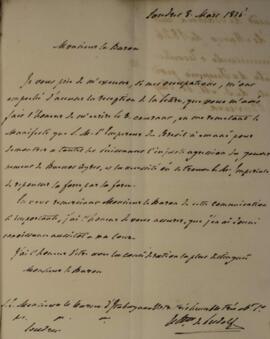 Londres 8. Mars 1826
Monsieur le Baron
Je vous prie de m'excuser, si mes occupations, m'ont
empeché d'accuser la reception de la lettre, que vous m'avés
fait l'honneur de m'ecrire le 2. courant, en me remettant le
Manifeste que S. M. l'Empereur du Bresil a emané pour
demontrer à toutes les Puissances l'injuste agression du gouver-
nement de Buenos Ayres, et la necessité où se trouve S. M. Imperiale
de repousser la force par la force.
En vous remerciant Monsieur le Baron de cette communication
si importante, j'ai l'honneur de vous assurer, que j'en ai donné
connaissance aussitot à ma Cour.
J'ai l'honneur d'être avec la consideration la plus distinguée
Monsieur le Baron
S. E. Monsieur le Baron d'Itabayana
Londres
de Ludolf